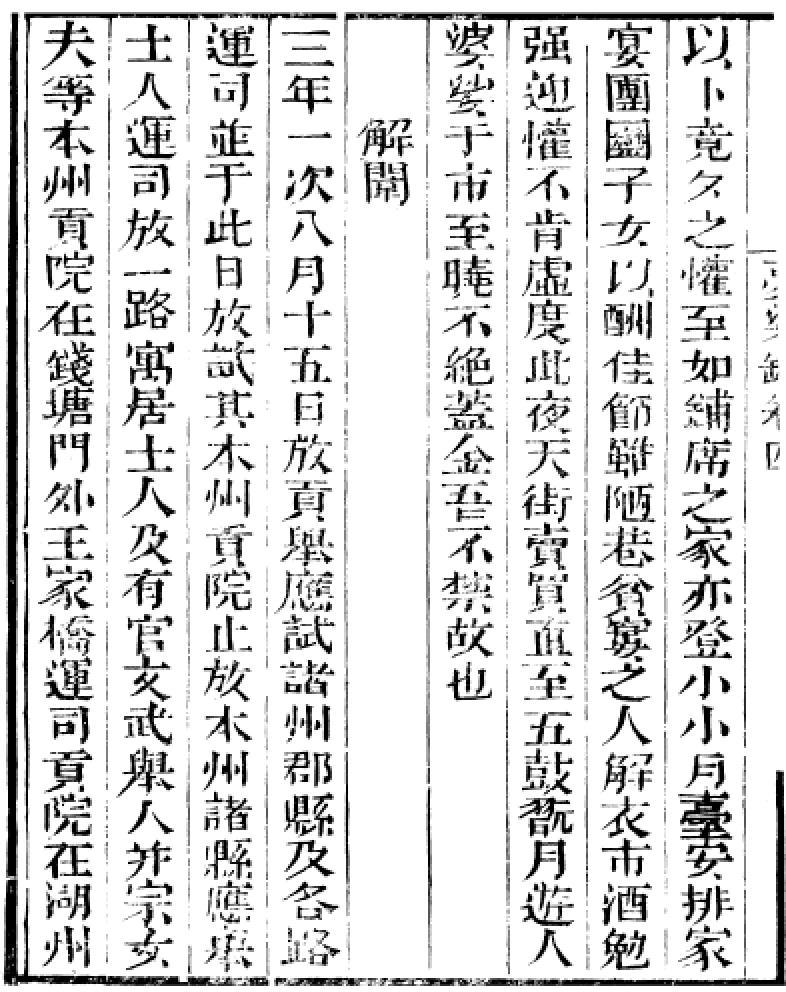 以卜竟夕之懽至如舖席之家亦登小小月臺安排家
宴團圞子女以酬佳節雖陋巷貧窶之人解衣市酒勉
强迎懽不肯虛度此夜天街賣買直至五鼓翫月遊人
婆娑于市至曉不絕蓋金吾不禁故也
解闈
三年一次八月十五日放貢舉應試諸州郡縣及各路
運司並于此日放試其本州貢院止放本州諸縣應舉
士人運司放一路寓居士人及有官文武舉人并宗女
夫等本州貢院在錢塘門外王家橋運司貢院在湖州